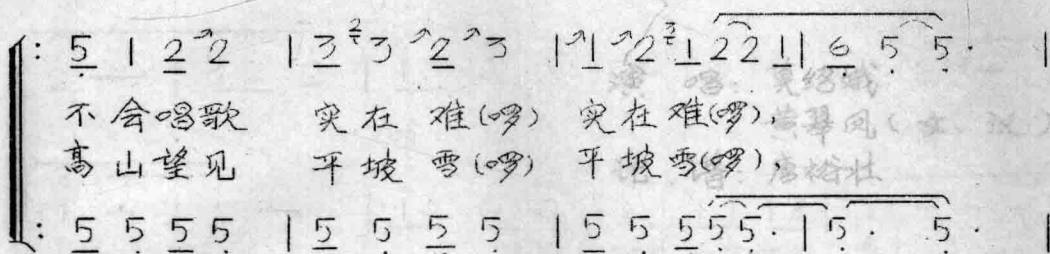 : 5 1 2 2 | 3 2 3 2 3 | 1 2 3 1 2 2 1 | 6 5 5 · |
不会唱歌 实在 难(啰) 实在难(啰),
高山望见 平坡 雪(啰) 平坡雪(啰),
: 5 5 5 5 | 5 5 5 5 | 5 5 5 5 5 · | 5 · 5 · |